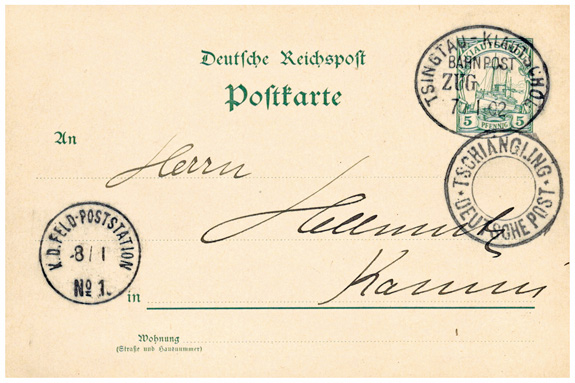 Deutsche Reichspost
Postkarte
TSINGTAU - KIAUTSCHOU
KIAUTSCHOU
BAHNPOST
ZUG
7 1 02
5 PFENNIG 5
TSCHIANGLING
* DEUTSCHE POST *
An
Herrn
K.D. FELD-POSTSTATION
8/1
No 1.
in
Wohnung
(Straße und Hausnummer)